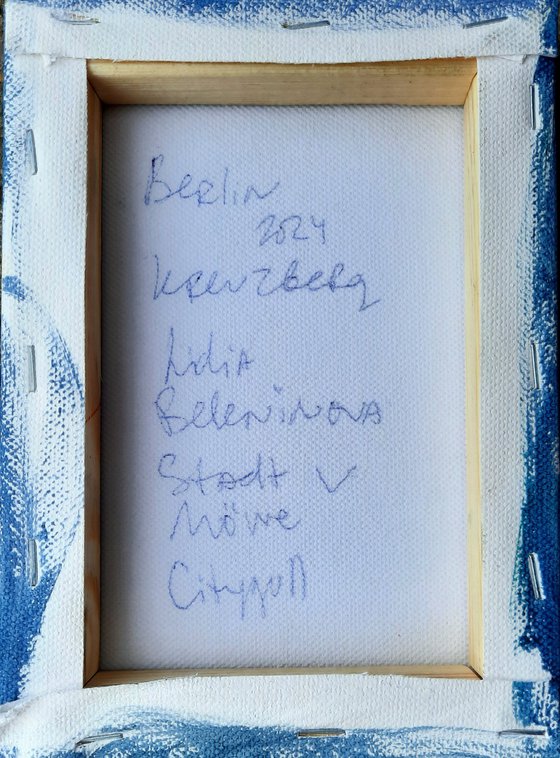 Berlin
2024
Kreuzberg
Lidia
Beleninova
Stadt
Möwe
Citygull